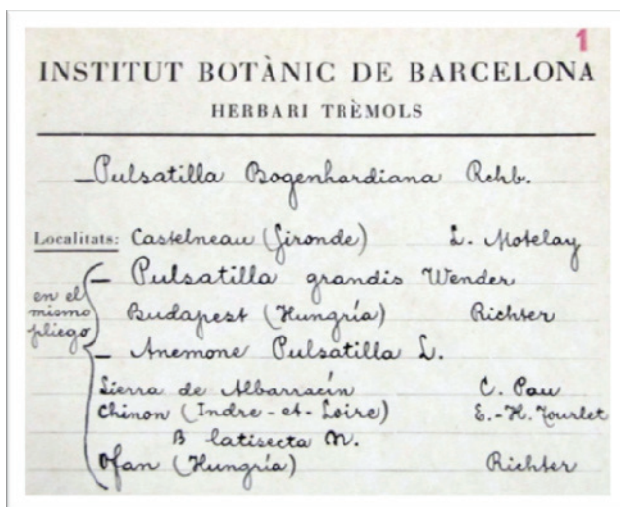 1
INSTITUT BOTÀNIC DE BARCELONA
HERBARI TRÈMOLS
— Pulsatilla Bogenhardiana Rchb.
Localitats: Castelneau (Gironde) L. Motelay
— Pulsatilla grandis Wender
en el mismo pliego
Budapest (Hungría) Richter
— Anemone Pulsatilla L.
Sierra de Albarracín C. Pau
Chinon (Indre-et-Loire) E.-H. Tourlet
B latisecta N.
Ofan (Hungría) Richter